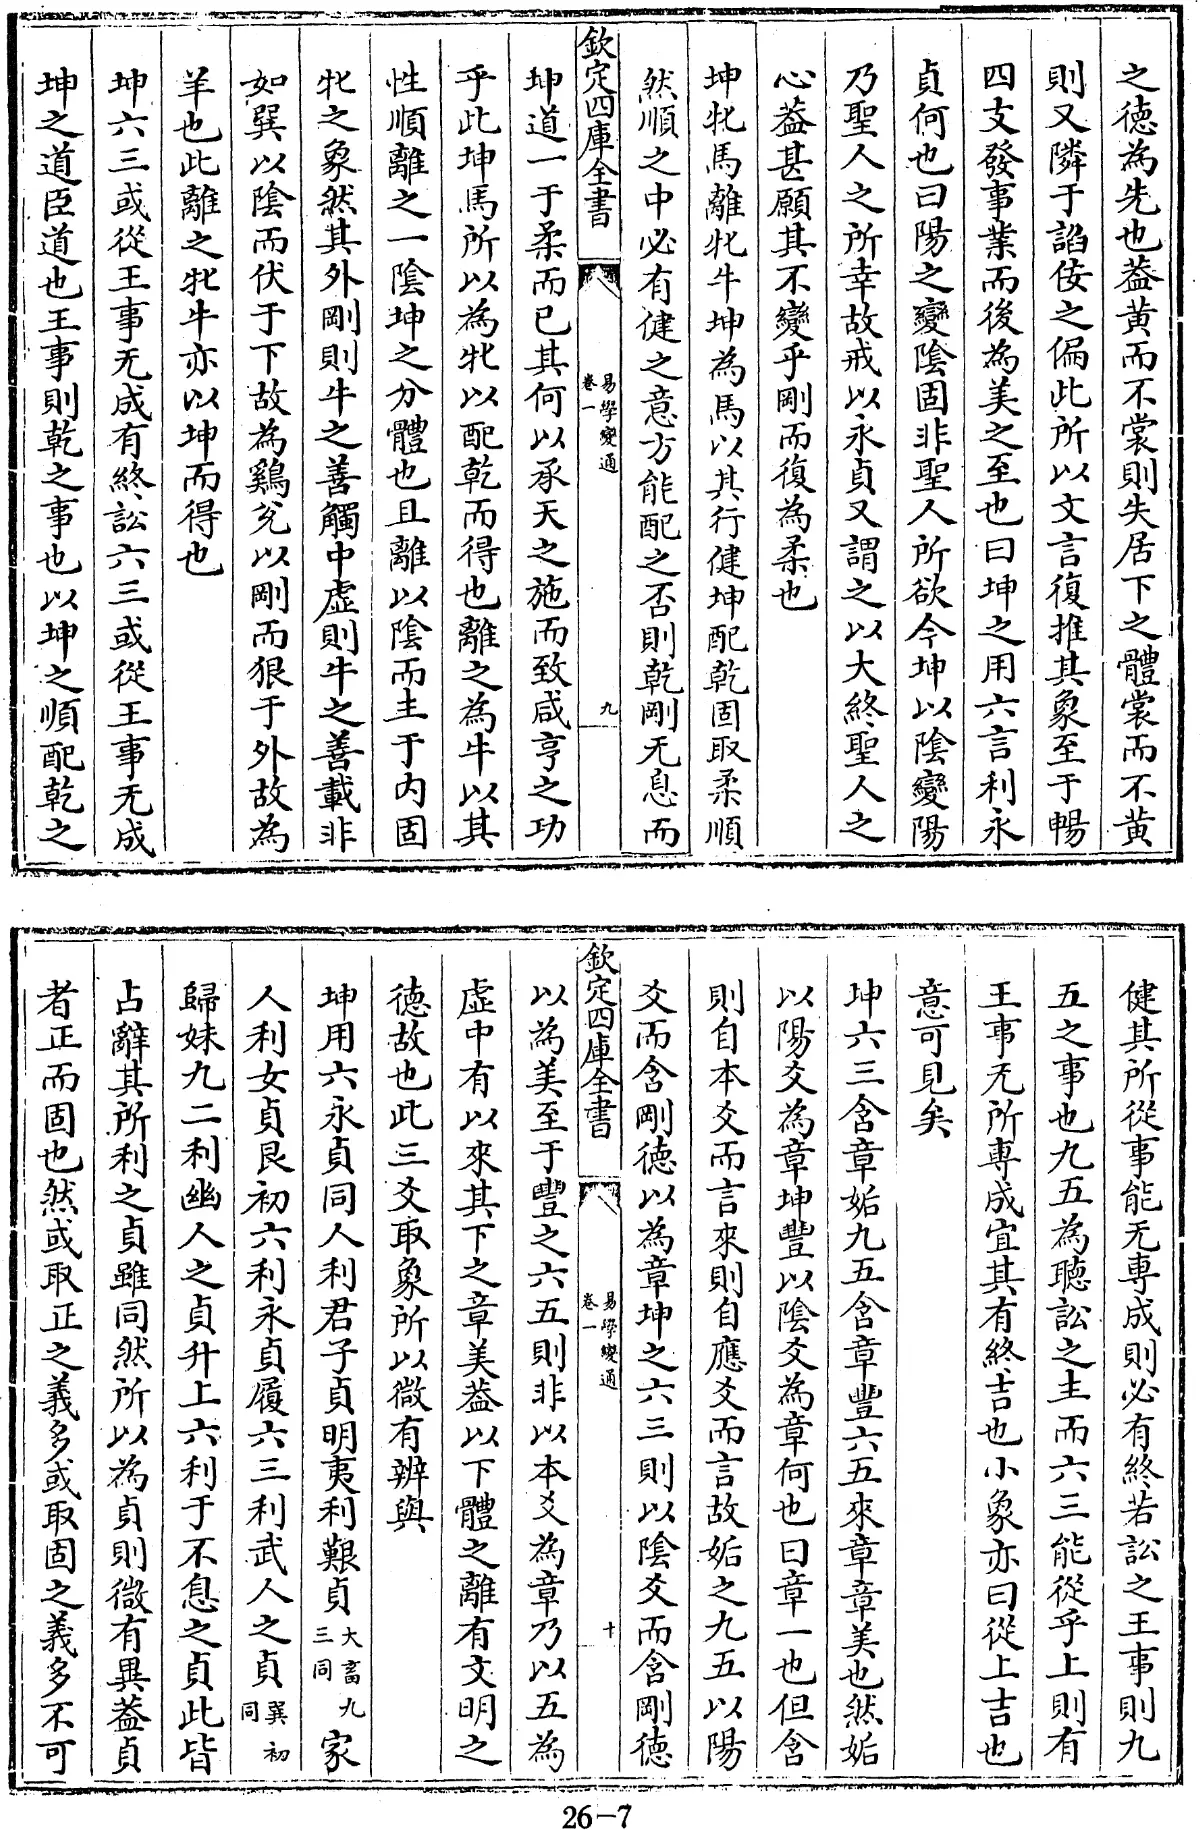 之德為先也葢黃而不裳則失居下之體裳而不黃
則又隣于謟佞之偏此所以文言復推其象至于暢
四支發事業而後為美之至也曰坤之用六言利永
貞何也曰陽之變陰固非聖人所欲今坤以陰變陽
乃聖人之所幸故戒以永貞又謂之以大終聖人之
心葢甚願其不變乎剛而復為柔也
坤牝馬離牝牛坤為馬以其行健坤配乾固取柔順
然順之中必有健之意方能配之否則乾剛无息而
欽定四庫全書
易學變通
卷一
九
坤道一于柔而已其何以承天之施而致咸亨之功
乎此坤馬所以為牝以配乾而得也離之為牛以其
性順離之一陰坤之分體也且離以陰而主于内固
牝之象然其外剛則牛之善觸中虛則牛之善載非
如巽以陰而伏于下故為鷄兊以剛而狠于外故為
羊也此離之牝牛亦以坤而得也
坤六三或從王事无成有終訟六三或從王事无成
坤之道臣道也王事則乾之事也以坤之順配乾之
健其所從事能无專成則必有終若訟之王事則九
五之事也九五為聽訟之主而六三能從乎上則有
王事无所專成宜其有終吉也小象亦曰從上吉也
意可見矣
坤六三含章姤九五含章豐六五來章章美也然姤
以陽爻為章坤豐以陰爻為章何也曰章一也但含
則自本爻而言來則自應爻而言故姤之九五以陽
爻而含剛德以為章坤之六三則以陰爻而含剛德
欽定四庫全書
易學變通
卷一
十
以為美至于豐之六五則非以本爻為章乃以五為
虛中有以來其下之章美葢以下體之離有文明之
德故也此三爻取象所以微有辨與
坤用六永貞同人利君子貞明夷利艱貞大畜九三同家
人利女貞艮初六利永貞履六三利武人之貞巽初同
歸妹九二利幽人之貞升上六利于不息之貞此皆
占辭其所利之貞雖同然所以為貞則微有異葢貞
者正而固也然或取正之義多或取固之義多不可
26-7